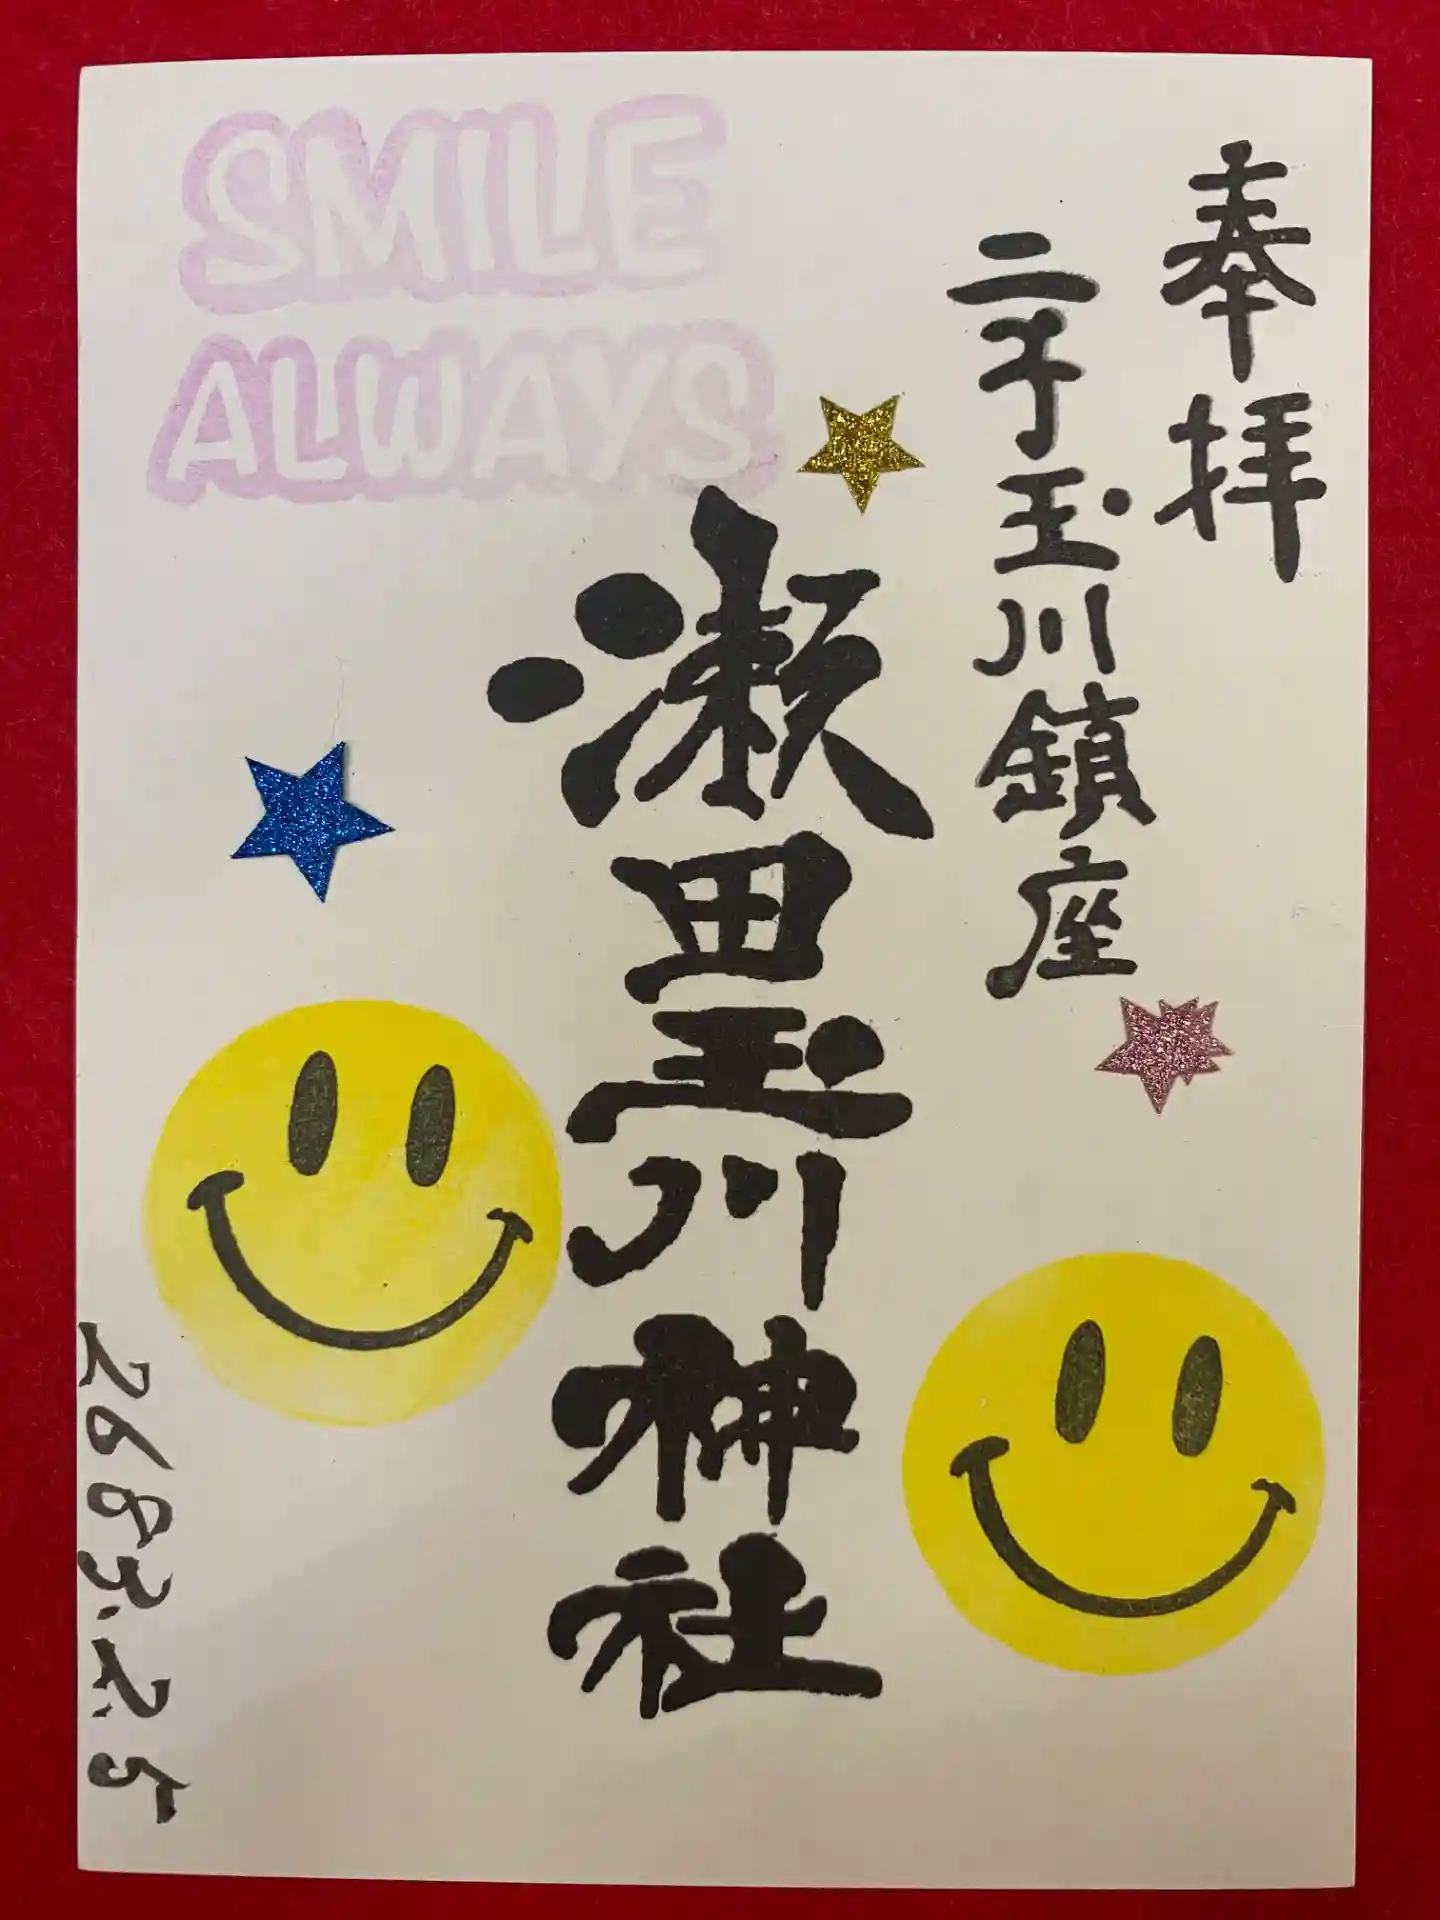 奉拝
二子玉川鎮座
瀬田玉川神社
SMILE
ALWAYS
2683.2.5